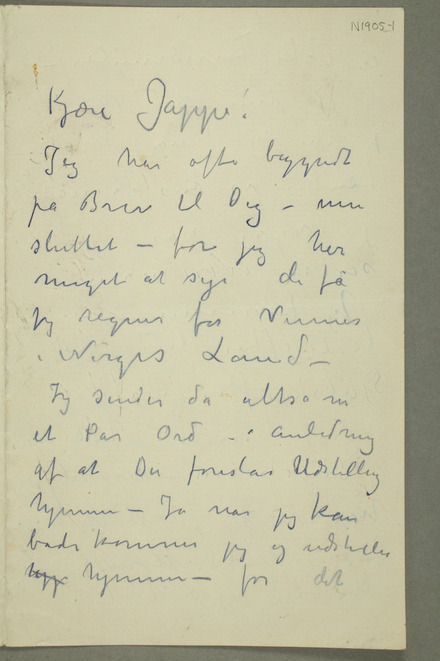 N1905-1
Kjære Jappe!
Jeg har ofte begyndt
på Brev til Dig – men
sluttet – for jeg har
meget at sige de få
jeg regner for Venner
i Norges Land –
Jeg sender da altså nu
et Par Ord – i anledning
af at Du foreslår Udstilling
hjemme – Ja når jeg kan
både kommer jeg og udstiller
hjemme – for det